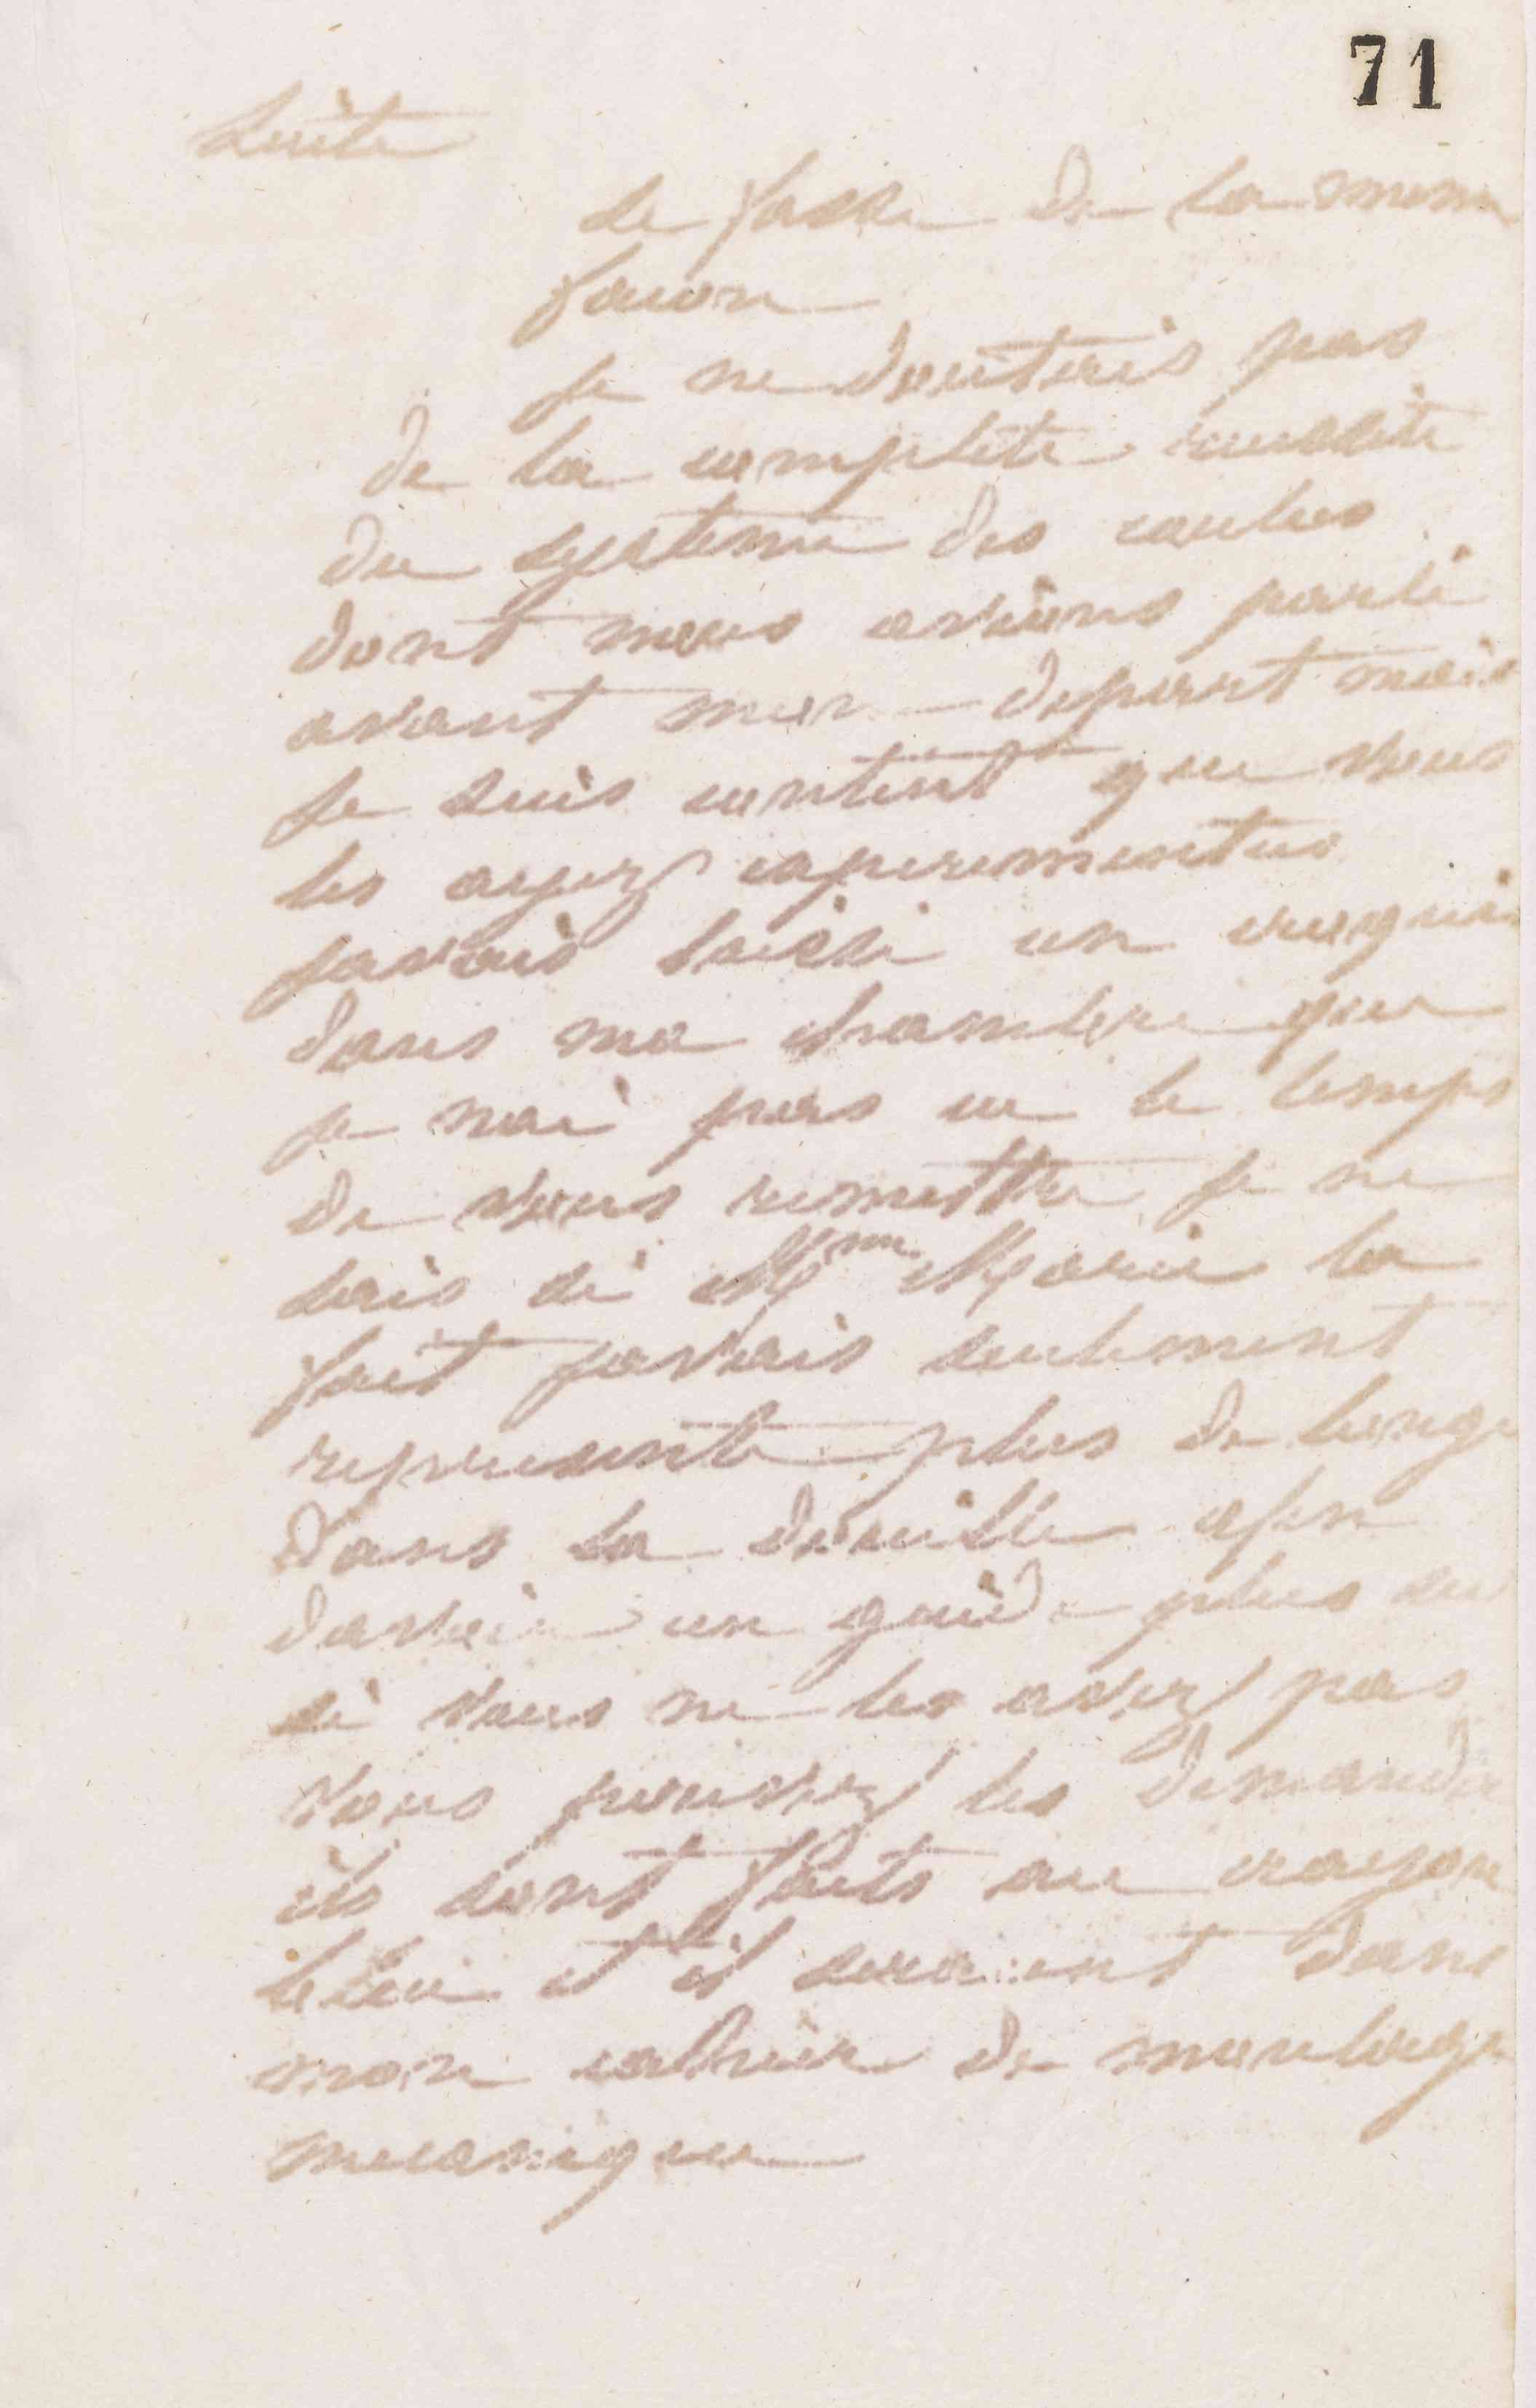 71
Suite
se fasse de la meme
facon
Je ne douteris pas
de la complete reussite
du systeme des
dont nous avions parlé
avant mon depart mais
je suis content que vous
les ayez experimentes
javais laissé un croquis
dans ma chambre que
je nai pas eu le temps
de vous remettre je ne
sais si Mme Marie la
fait javais seulement
represente plus de
dans la douille afin
davoir un guide plus
si vous ne les avez pas
vous pouvez les demander
ils sont faits au crayon
bleu et il seraient dans
mon cahier de moulage
mecanique